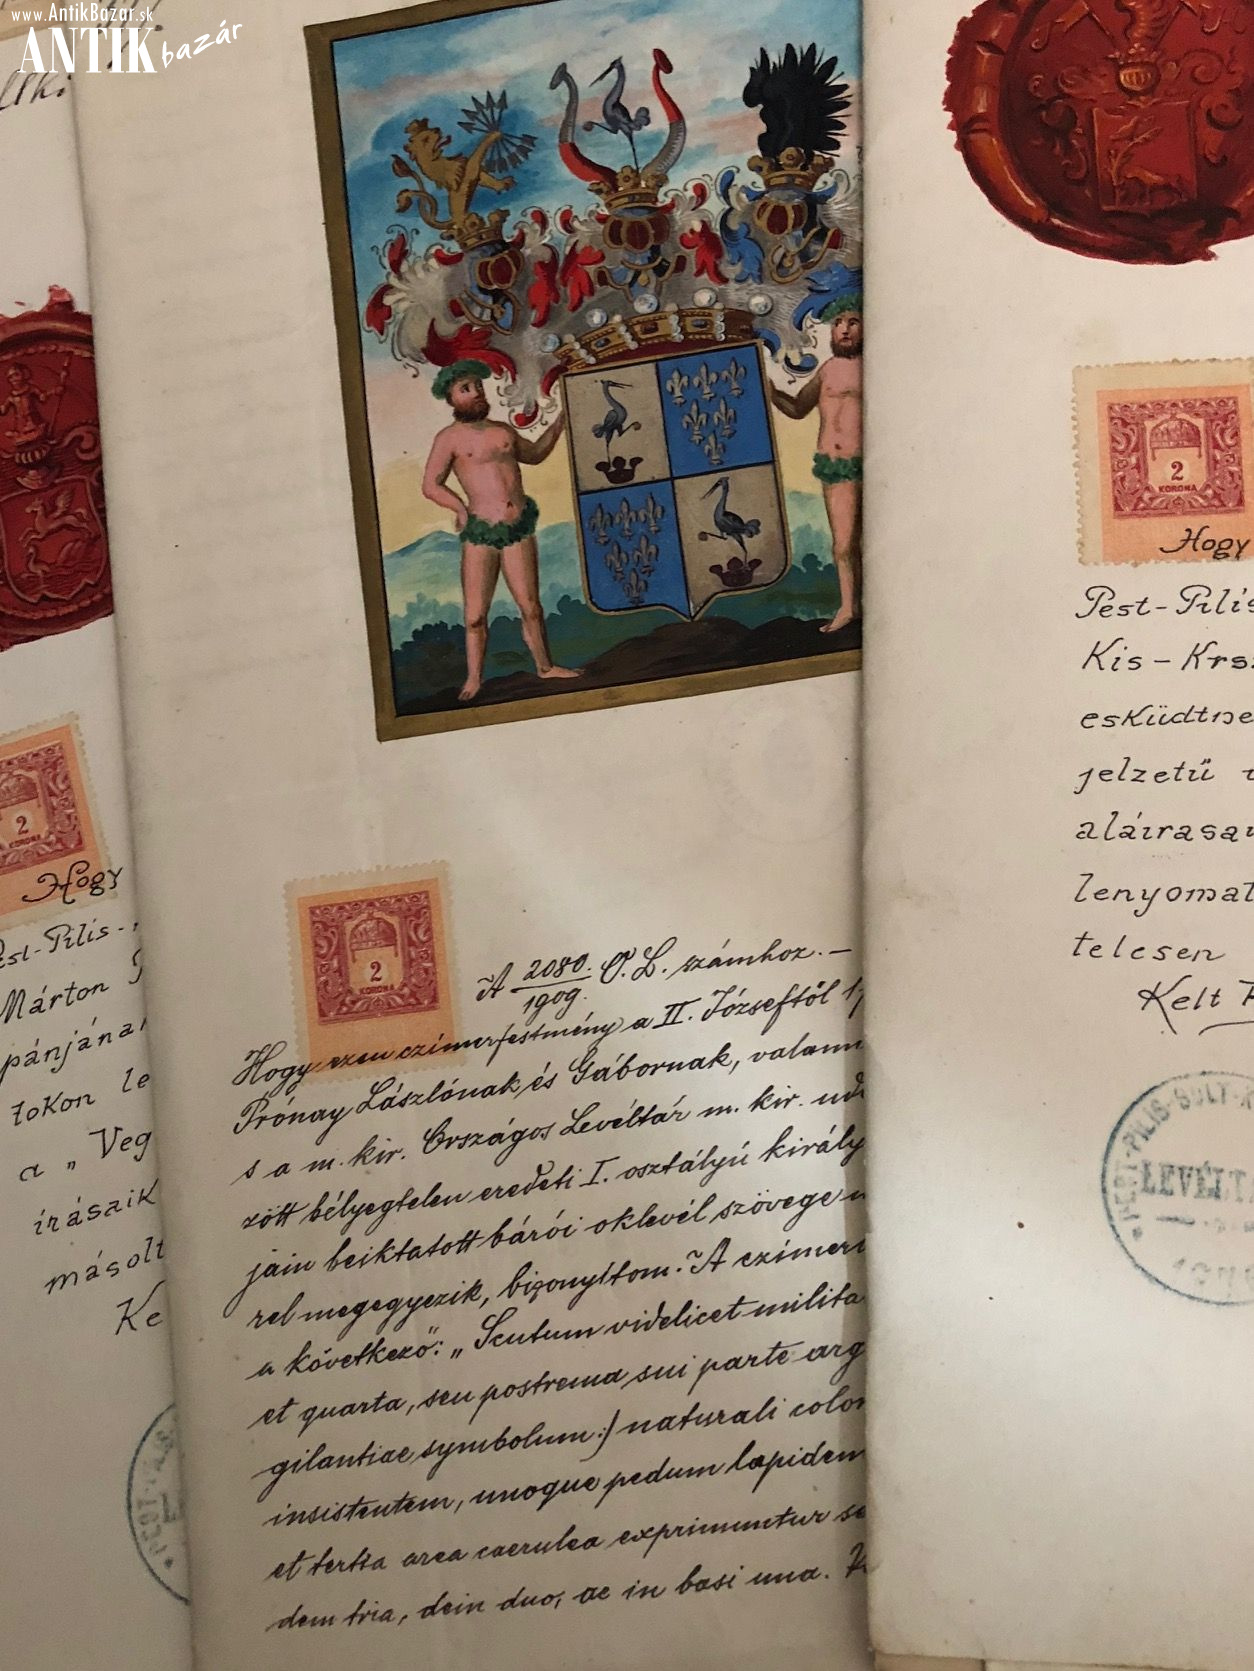 www.AntikBazar.sk
ANTIK bazár
2
KORONA
Hogy
Pilis-
Márton
pánjána
tokon le
a „ Veg
írásaik
másolt
Ke
2
KORONA
A 2080./1909. O. L. számhoz. —
Hogy ezen czímerfestmény a II. Józseftől 17
Prónay Lászlónak és Gábornak, valami
s a m. kir. Országos Levéltár m. kir. udv
zött bélyegtelen eredeti I. osztályú király
jain beiktatott bárói oklevél szövege
rel megegyezik, bizonyítom. A czímer
a következő: „Scutum videlicet milita
et quarta, seu postrema sui parte arg
gilantiae symbolum:) naturali color
insistentem, unoque pedum lapidem
et tertia area caerulea exprimuntur se
dem tria, dein duo, ac in basi una.
2
KORONA
Hogy
Pest-Pilis
Kis-Krsz
esküdtne
jelzetű
aláirasa
lenyomat
telesen
Kelt
PEST-PILIS-SOLT-K
LEVÉLTÁ